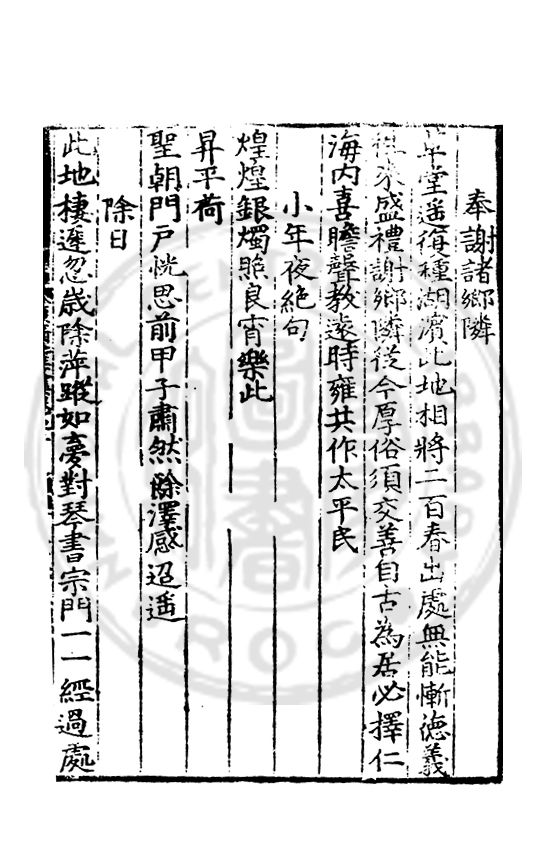 奉謝諸鄉隣
草堂遥復種湖濱此地相將二百春出處無能慚德義
往來盛禮謝鄉隣從今厚俗須交善自古為居必擇仁
海内喜瞻聲教遠時雍共作太平民
小年夜絶句
煌煌銀燭照良宵樂此
昇平荷
聖朝門戶恍思前甲子肅然餘澤感迢遥
除日
此地棲遲忽歲除萍蹤如夣對琴書宗門一一經過處